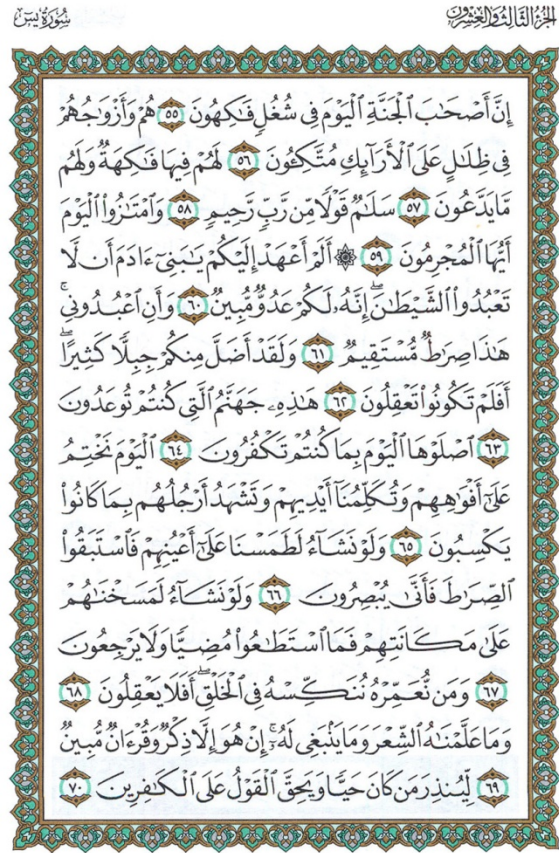 الجزء الثالث والعشرون
سورة يس
إِنَّ أَصْحَٰبَ ٱلْجَنَّةِ ٱلْيَوْمَ فِى شُغُلٍ فَٰكِهُونَ ٥٥ هُمْ وَأَزْوَٰجُهُمْ
فِى ظِلَٰلٍ عَلَى ٱلْأَرَآئِكِ مُتَّكِـُٔونَ ٥٦ لَهُمْ فِيهَا فَٰكِهَةٌ وَلَهُم
مَّا يَدَّعُونَ ٥٧ سَلَٰمٌ قَوْلًا مِّن رَّبٍّ رَّحِيمٍ ٥٨ وَٱمْتَٰزُوا۟ ٱلْيَوْمَ
أَيُّهَا ٱلْمُجْرِمُونَ ٥٩ ۞ أَلَمْ أَعْهَدْ إِلَيْكُمْ يَٰبَنِىٓ ءَادَمَ أَن لَّا
تَعْبُدُوا۟ ٱلشَّيْطَٰنَ ۖ إِنَّهُۥ لَكُمْ عَدُوٌّ مُّبِينٌ ٦٠ وَأَنِ ٱعْبُدُونِى ۚ
هَٰذَا صِرَٰطٌ مُّسْتَقِيمٌ ٦١ وَلَقَدْ أَضَلَّ مِنكُمْ جِبِلًّا كَثِيرًا ۖ
أَفَلَمْ تَكُونُوا۟ تَعْقِلُونَ ٦٢ هَٰذِهِۦ جَهَنَّمُ ٱلَّتِى كُنتُمْ تُوعَدُونَ
٦٣ ٱصْلَوْهَا ٱلْيَوْمَ بِمَا كُنتُمْ تَكْفُرُونَ ٦٤ ٱلْيَوْمَ نَخْتِمُ
عَلَىٰٓ أَفْوَٰهِهِمْ وَتُكَلِّمُنَآ أَيْدِيهِمْ وَتَشْهَدُ أَرْجُلُهُم بِمَا كَانُوا۟
يَكْسِبُونَ ٦٥ وَلَوْ نَشَآءُ لَطَمَسْنَا عَلَىٰٓ أَعْيُنِهِمْ فَٱسْتَبَقُوا۟
ٱلصِّرَٰطَ فَأَنَّىٰ يُبْصِرُونَ ٦٦ وَلَوْ نَشَآءُ لَمَسَخْنَٰهُمْ
عَلَىٰ مَكَانَتِهِمْ فَمَا ٱسْتَطَٰعُوا۟ مُضِيًّا وَلَا يَرْجِعُونَ
٦٧ وَمَن نُّعَمِّرْهُ نُنَكِّسْهُ فِى ٱلْخَلْقِ ۖ أَفَلَا يَعْقِلُونَ ٦٨
وَمَا عَلَّمْنَٰهُ ٱلشِّعْرَ وَمَا يَنۢبَغِى لَهُۥٓ ۚ إِنْ هُوَ إِلَّا ذِكْرٌ وَقُرْءَانٌ مُّبِينٌ
٦٩ لِّيُنذِرَ مَن كَانَ حَيًّا وَيَحِقَّ ٱلْقَوْلُ عَلَى ٱلْكَٰفِرِينَ ٧٠